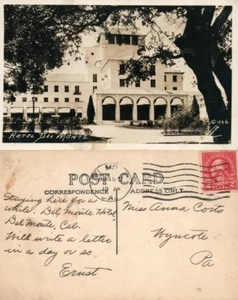 HOTEL DEL MONTE
POST CARD
CORRESPONDENCE
ADDRESS ONLY
Staying here for a
while. Del Monte Hotel
Del Monte, Cal.
Will write a letter
in a day or so.
Ernst
Miss Anna Costa
Wyncote
Pa